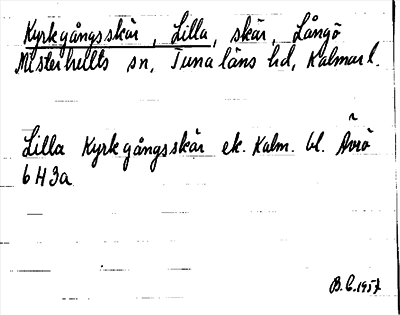 Kyrkgångsskär, Lilla, skär, Långö
Misterhults sn, Tunaläns hd, Kalmar l.
Lilla Kyrkgångsskär ek. Kalm. bl. Ävrö
6H3a
B.C. 1957